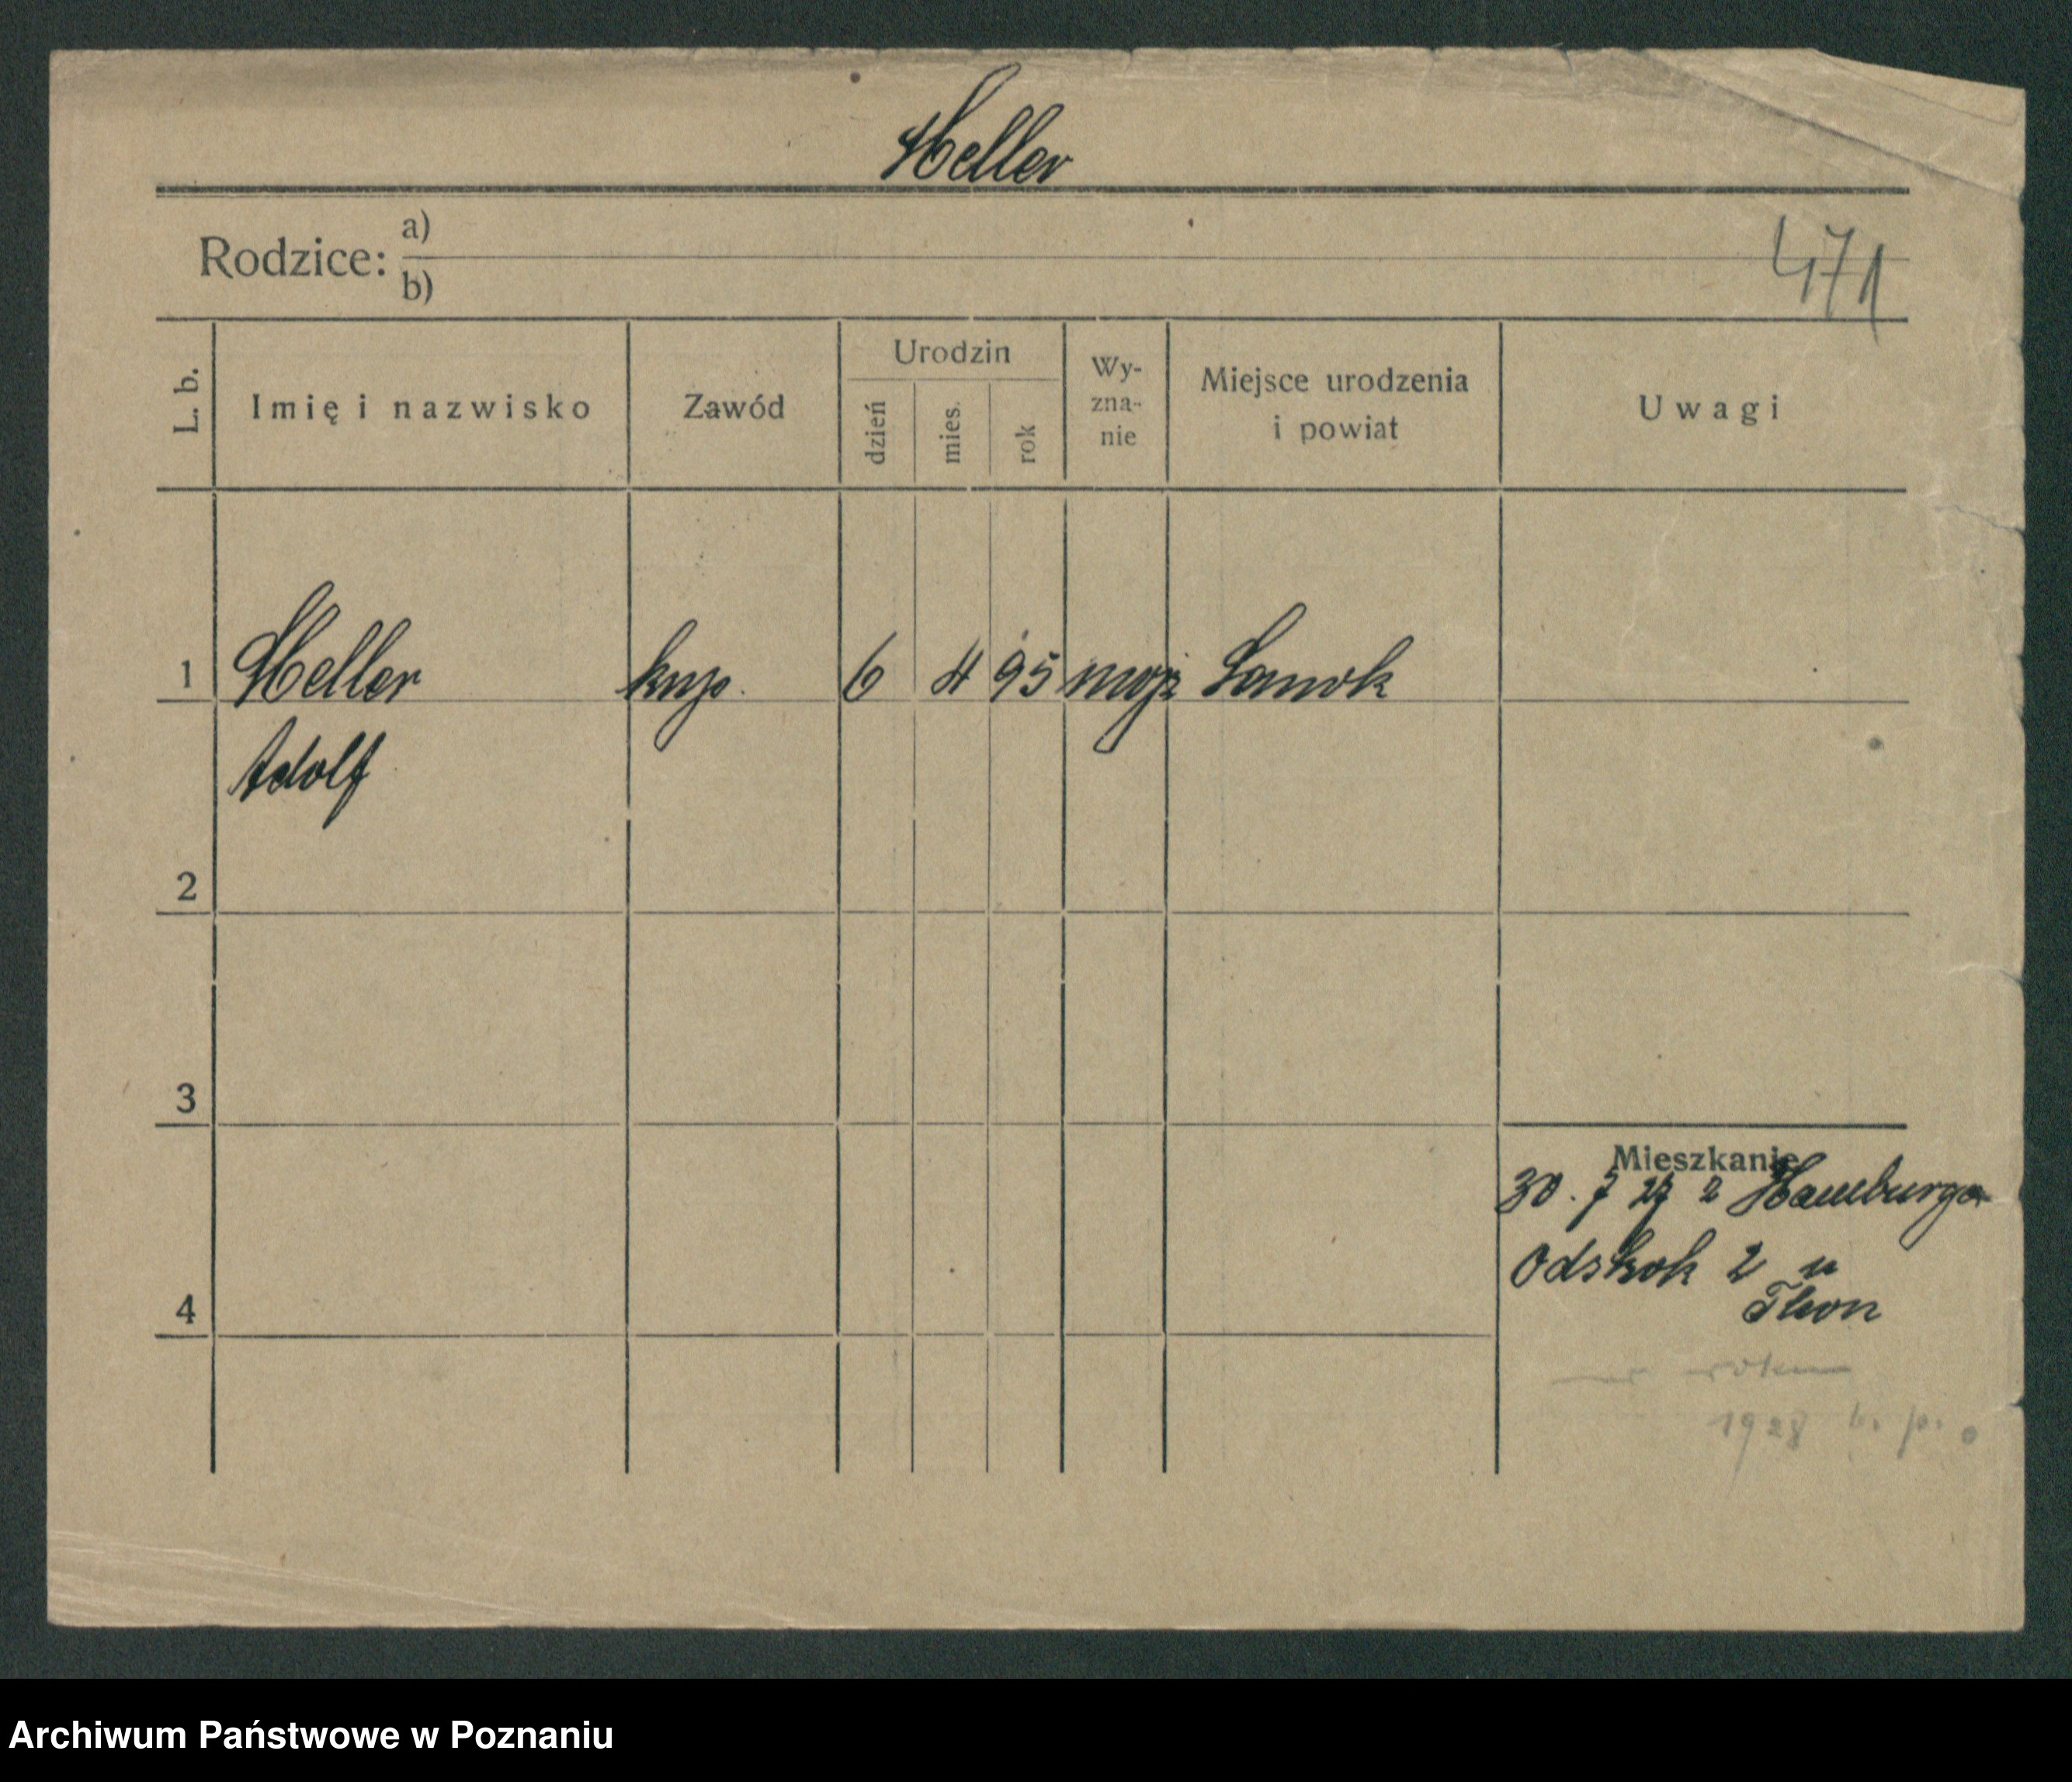 Heller
Rodzice: a)
b)
471
L. b.
Imię i nazwisko
Zawód
Urodzin
dzień
mies.
rok
Wy-
zna-
nie
Miejsce urodzenia
i powiat
Uwagi
1 Heller kup. 6 4 95 mojż Sanok
Adolf
2
3
4
Mieszkanie
30. 7 27 z Hamburga
Odskok 2 u
Thon
roku
1928 b. p.
Archiwum Państwowe w Poznaniu